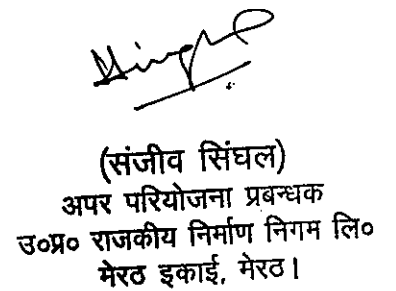 (संजीव सिंघल)
अपर परियोजना प्रबन्धक
उ०प्र० राजकीय निर्माण निगम लि०
मेरठ इकाई, मेरठ।